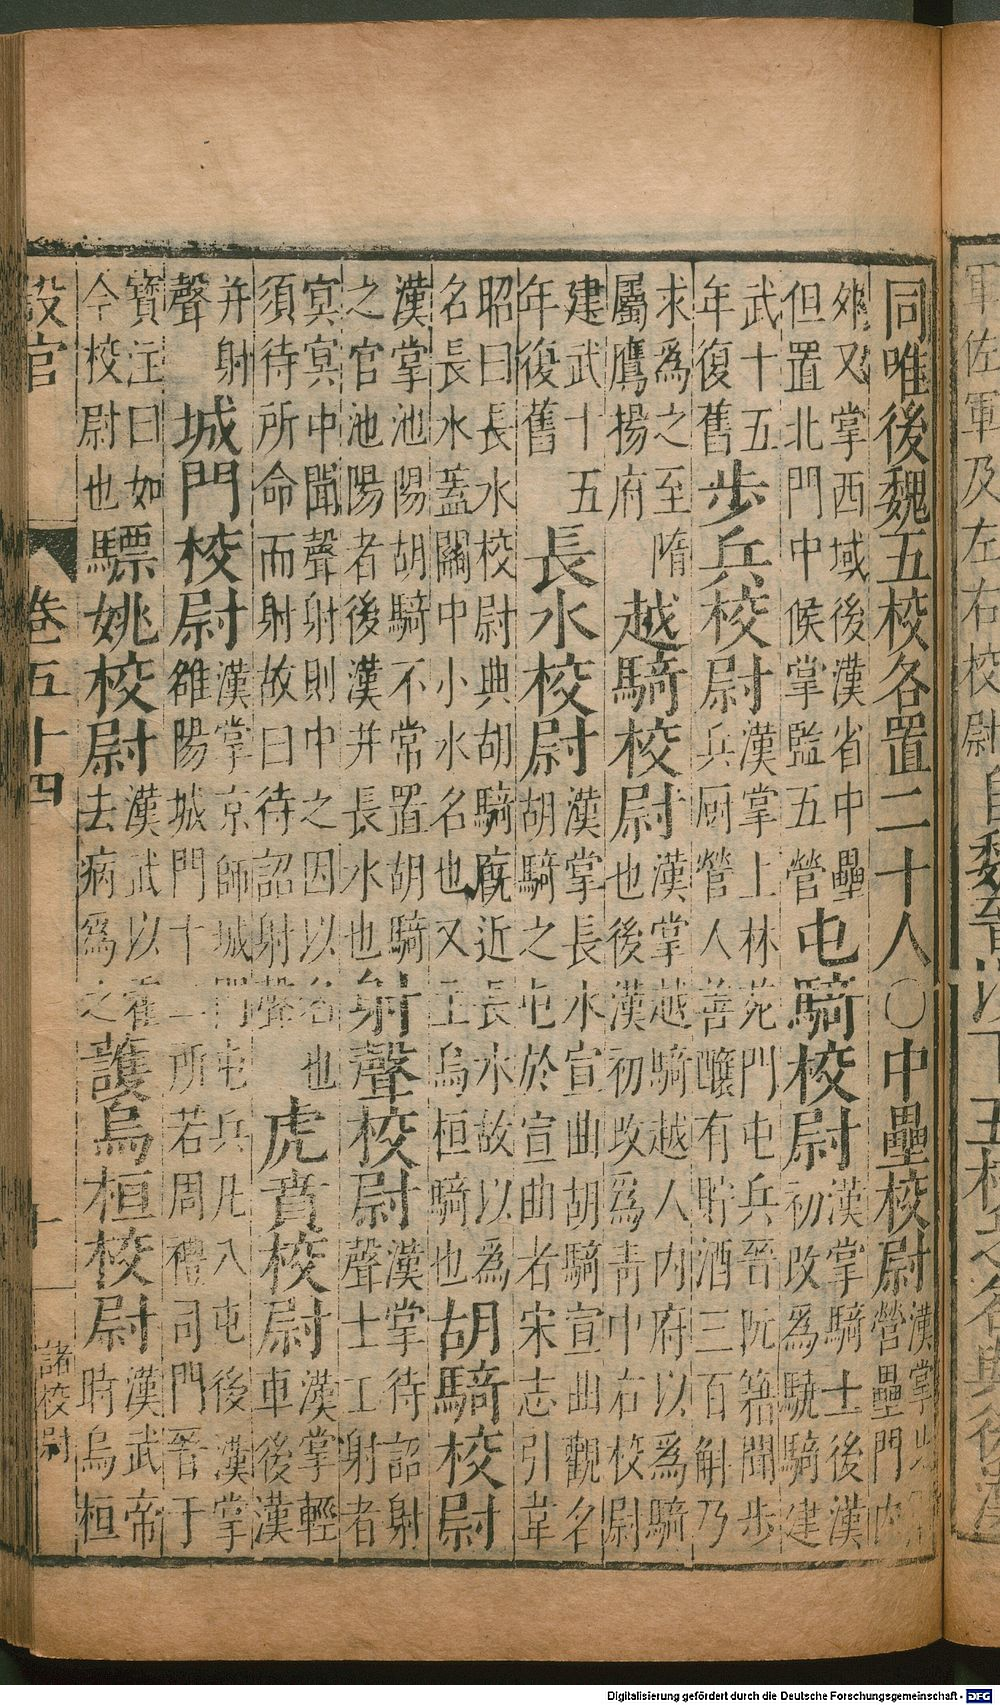 軍佐軍及左右校尉自魏晉以下五校之名與後漢
同唯後魏五校各置二十人○中壘校尉漢掌北營壘門內
外又掌西域後漢省中壘但置北門中候掌監五營屯騎校尉漢掌騎士後漢初改爲驍騎建
武十五年復舊步兵校尉漢掌上林苑門屯兵晉阮籍聞步兵厨營人善釀有貯酒三百斛乃
求爲之至隋屬鷹揚府越騎校尉漢掌越騎越人內府以爲騎也後漢初改爲青巾右校尉
建武十五年復舊長水校尉漢掌長水宣曲胡騎宣曲觀名胡騎之屯於宣曲者宋志引韋
昭曰長水校尉典胡騎廐近長水故以爲名長水蓋關中小水名也又主烏桓騎也胡騎校尉
漢掌池陽胡騎不常置胡騎之官池陽者後漢并長水也射聲校尉漢掌待詔射聲士工射者
冥冥中聞聲射則中之因以名也須待所命而射故曰待詔射聲虎賁校尉漢掌輕車後漢
并射聲城門校尉漢掌京師城門屯兵凡八屯後漢掌雒陽城門十二所若周禮司門晉于
寶注曰如今校尉也驃姚校尉漢武以霍去病爲之護烏桓校尉漢武帝時烏桓
設官 卷五十四 十 諸校尉
Digitalisierung gefördert durch die Deutsche Forschungsgemeinschaft - DFG